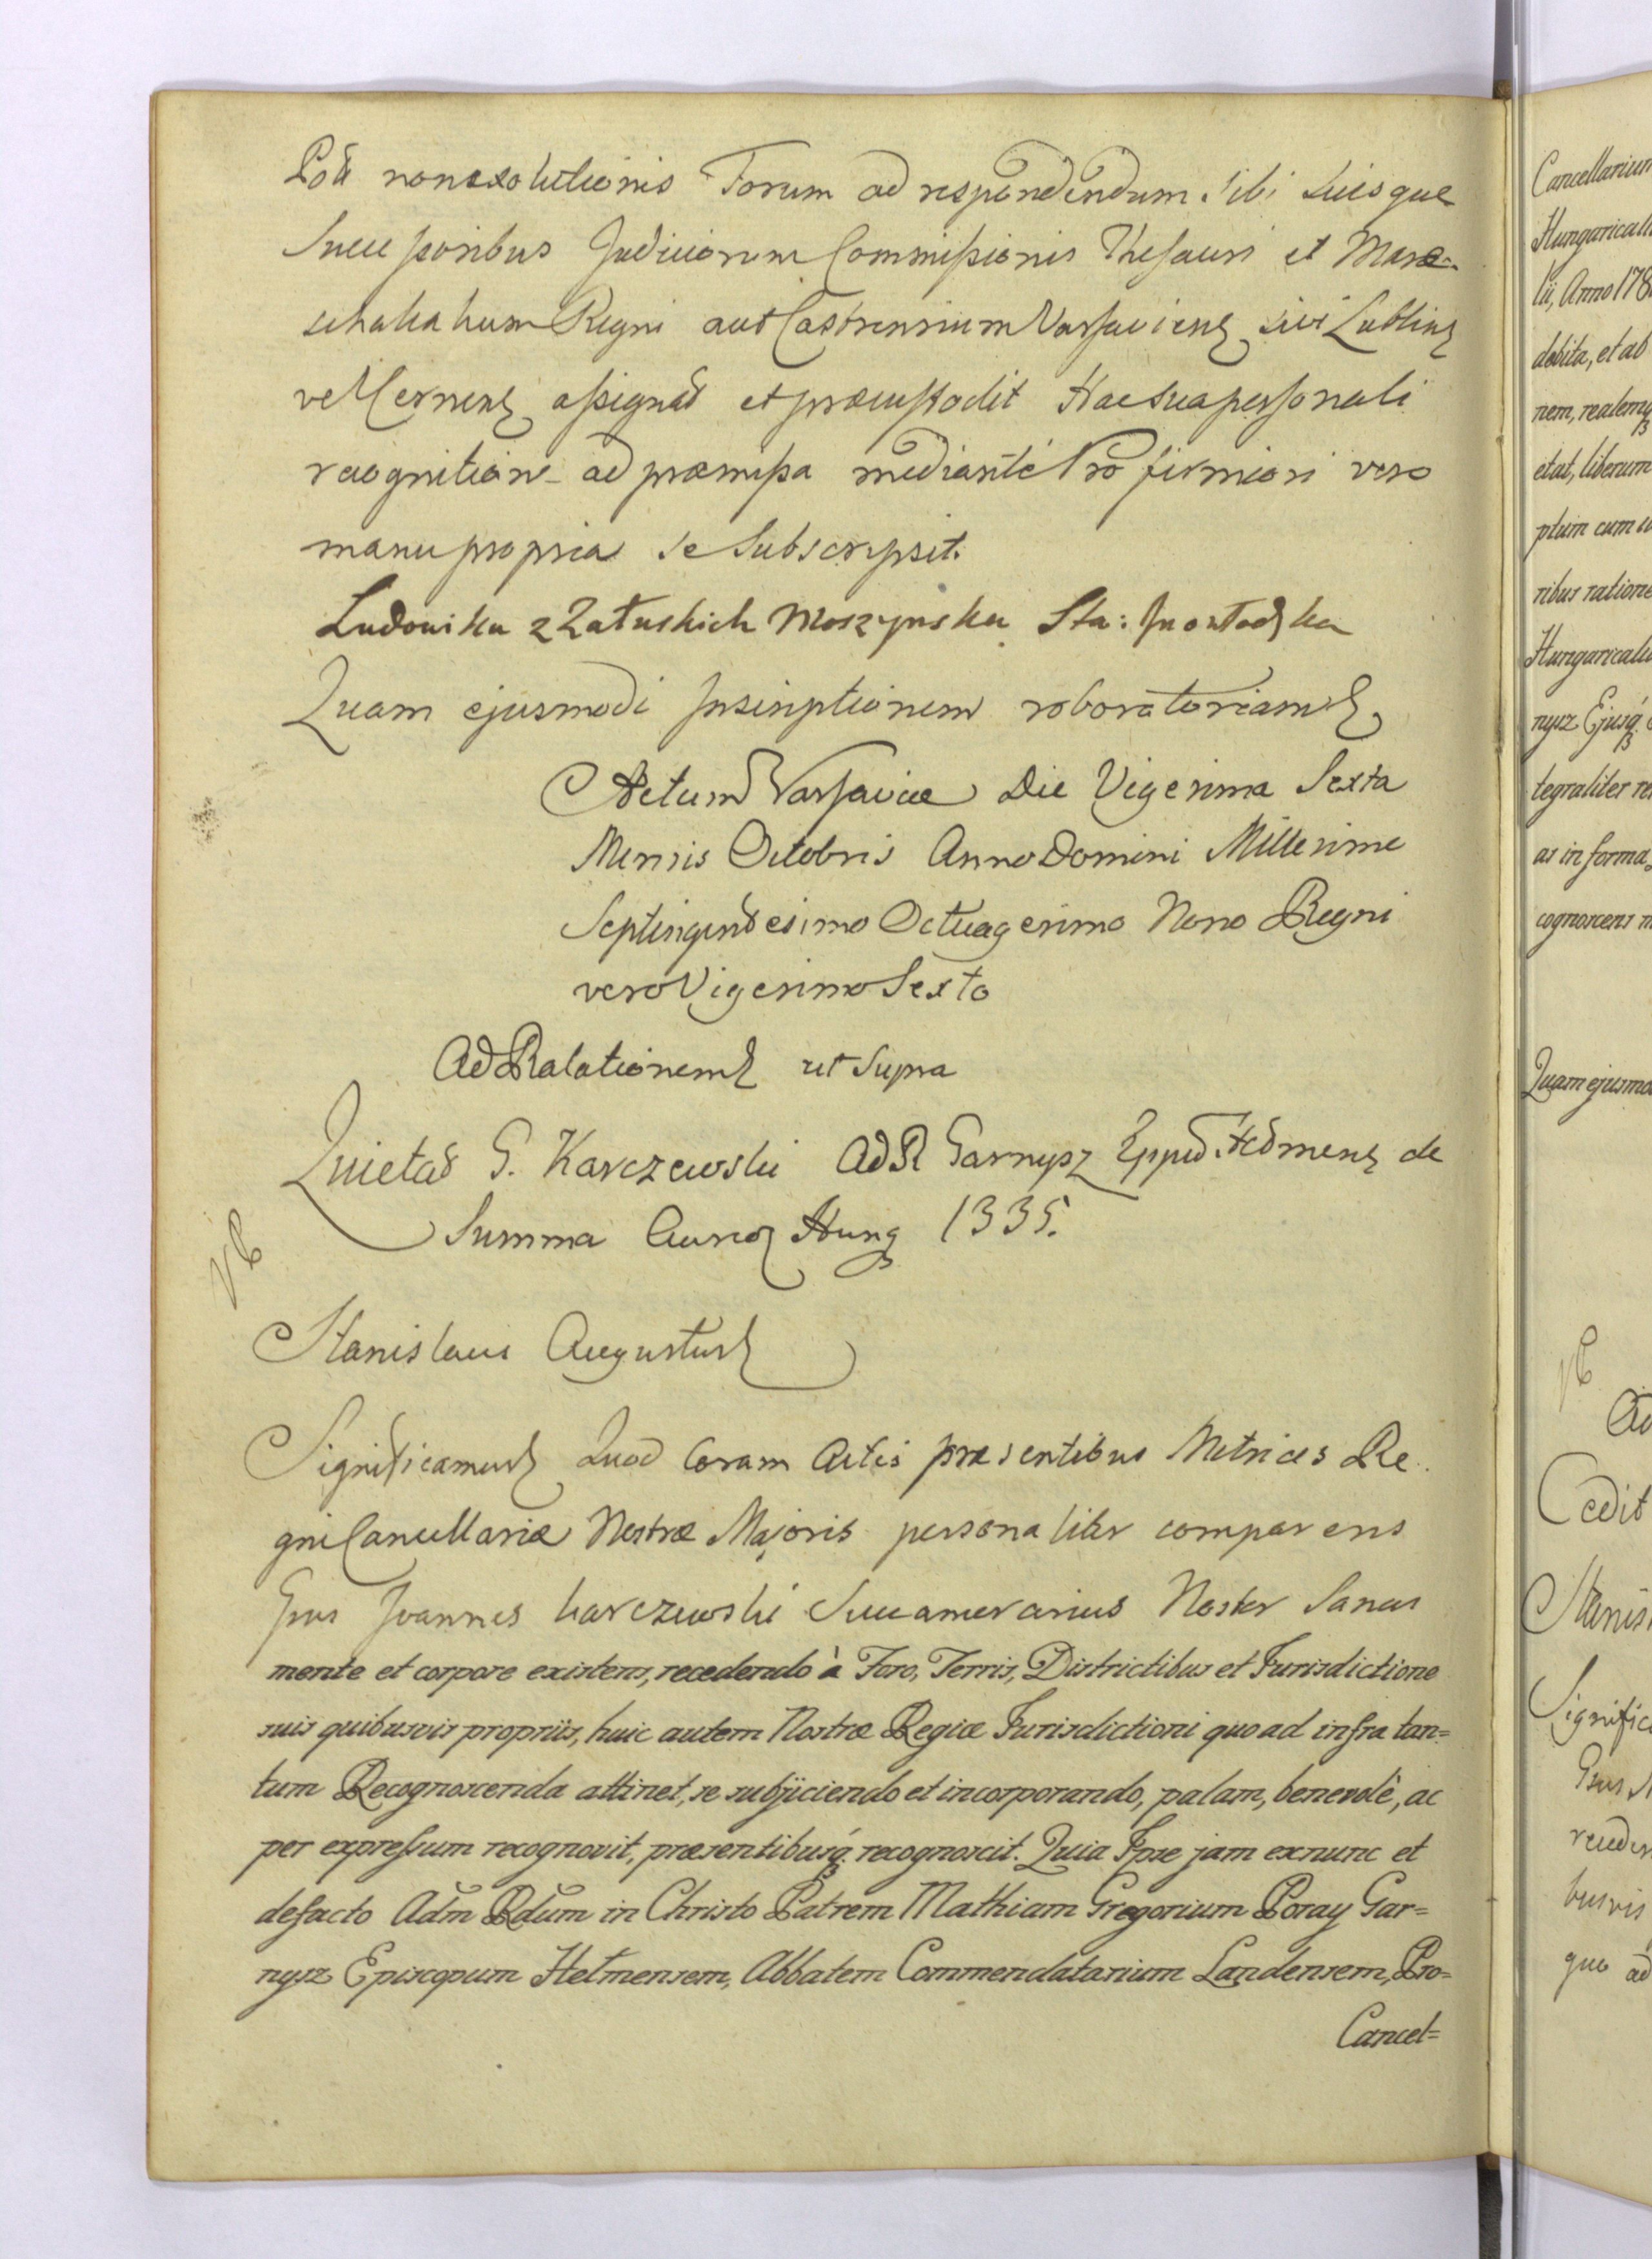 nonexolutionis Forum ad respondendum sibi suisque
Successoribus Judiciorum Commissionis Thesauri et Mare-
schalcalium Regni aut Castrensium Varsaviens sive Lublins
vel Cernens assignat et præcustodit Hac sua personali
recognitione ad præmissa mediante Pro firmiori vero
manu propria se Subscripsit.
Ludowika z Załuskich Moszynska Sta: Inowłodzka
Quam ejusmodi Inscriptionem roboratoriam
Actum Varsaviæ Die Vigesima Sexta
Mensis Octobris Anno Domini Millesimo
Septingentesimo Octuagesimo Nono Regni
vero Vigesimo Sexto
Ad Relationem ut Supra
Quietat G. Karczewski AdR Garnysz Eppũ Hełmens de
Summa Aureor Hung 1335.
Stanislaus Augustus
Significamus Quod Coram Actis præsentibus Metrices Re-
gni Cancellariæ Nostræ Majoris personaliter comparens
Gsus Joannes Karczewski Succamerarius Noster Sanus
mente et corpore existens, recedendo à Foro, Terris, Districtibus et Jurisdictione
suis quibusvis propriis, huic autem Nostræ Regiæ Jurisdictioni quo ad infra tan=
tum Recognoscenda attinet, se subjiciendo et incorporando, palam, benevolè, ac
per expressum recognovit, præsentibusq recognoscit. Quia Ipse jam exnunc et
defacto Adm Rdum in Christo Patrem Mathiam Gregorium Poray Gar=
nysz Episcopum Hełmensem, Abbatem Commendatarium Landensem, Pro=
Cancel=
Cancellarium
Hungaricali
lii, Anno 178
debita, et ab
nem, realemq
etat, liberum
ptum cum
ribus ratione
Hungaricali
nysz Ejusq
tegraliter re
as in forma
cognoscens
Quam ejusmo
Cedit
Stanis
Signific
Gsus
busvis
quo ad